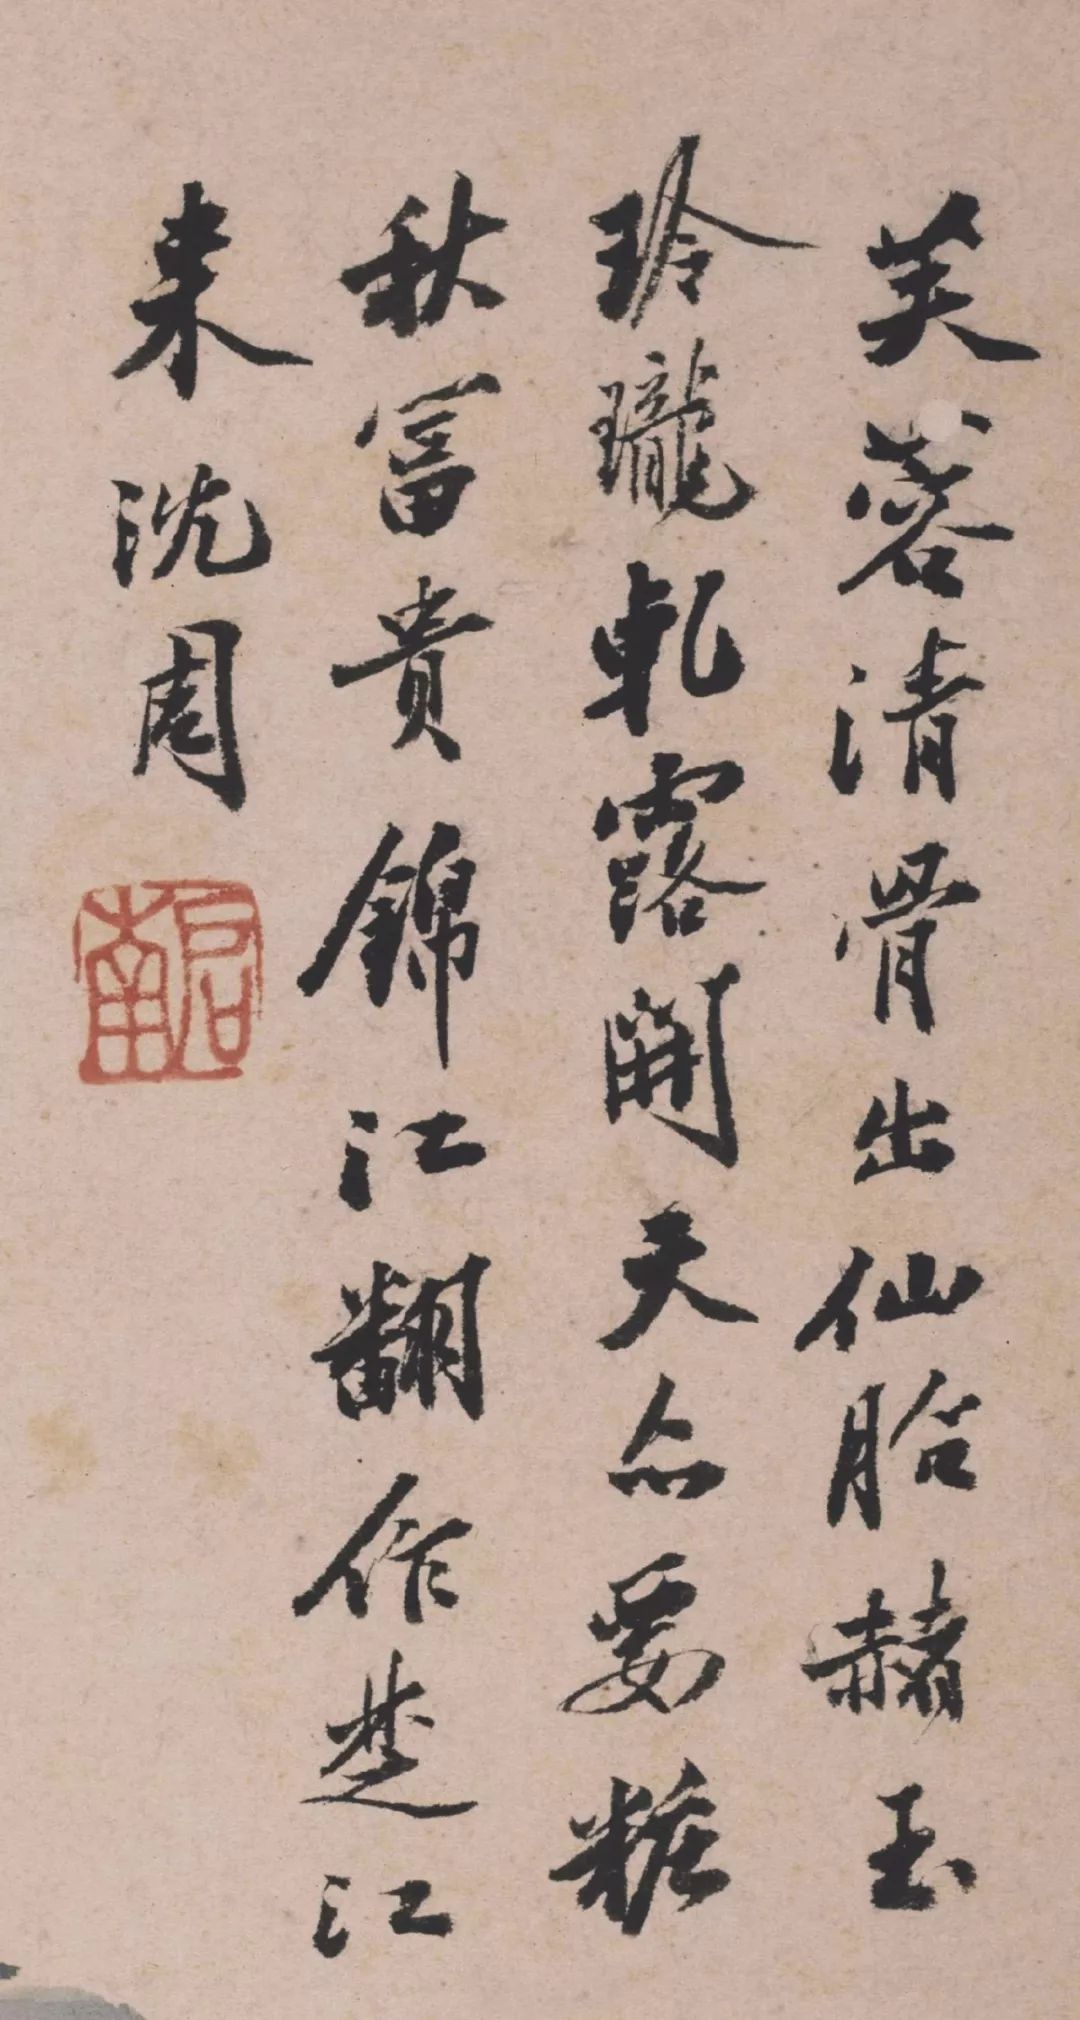 芙蓉清骨出仙胎赭玉
玲瓏軋露開天亦要糚
秋富貴錦江翻作楚江
来沈周
啟南